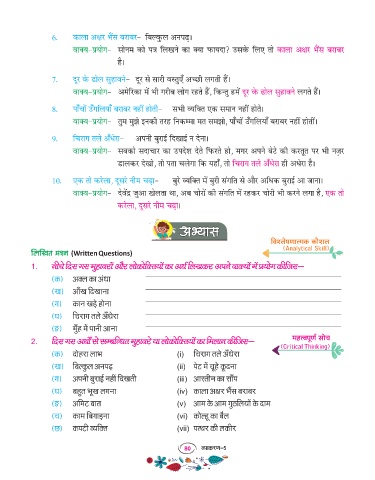 6. काला अक्षर भैंस बराबर– बिल्कुल अनपढ़।
वाक्य-प्रयोग– सोनम को पत्र लिखने का क्या फायदा? उसके लिए तो काला अक्षर भैंस बराबर
है।
7. दूर के ढोल सुहावने– दूर से सारी वस्तुएँ अच्छी लगती हैं।
वाक्य-प्रयोग– अमेरिका में भी गरीब लोग रहते हैं, किन्तु हमें दूर के ढोल सुहावने लगते हैं।
8. पाँचों उँगलियाँ बराबर नहीं होती– सभी व्यक्ति एक समान नहीं होते।
वाक्य-प्रयोग– तुम मुझे इनकी तरह निकम्मा मत समझो, पाँचों उँगलियाँ बराबर नहीं होतीं।
9. चिराग तले अँधेरा– अपनी बुराई दिखाई न देना।
वाक्य-प्रयोग– सबको सदाचार का उपदेश देते फिरते हो, मगर अपने बेटे की करतूत पर भी नज़र
डालकर देखो, तो पता चलेगा कि यहाँ, तो चिराग तले अँधेरा ही अधेरा है।
10. एक तो करेला, दूसरे नीम चढ़ा– बुरे व्यक्ति में बुरी संगति से और अधिक बुराई आ जाना।
वाक्य-प्रयोग– देवेंद्र जुआ खेलता था, अब चोरों की संगति में रहकर चोरी भी करने लगा है, एक तो
करेला, दूसरे नीम चढ़ा।
अभ्यास
विश्लेषणात्मक कौशल
(Analytical Skill)
लिखित प्रश्न (Written Questions)
1. नीचे दिए गए मुहावरों और लोकोक्तियों का अर्थ लिखकर अपने वाक्यों में प्रयोग कीजिए—
(क) अक्ल का अंधा
(ख) आँख दिखाना
(ग) कान खड़े होना
(घ) चिराग तले अँधेरा
(ङ) मुँह में पानी आना
महत्वपूर्ण सोच
(Critical Thinking)
2. दिए गए अर्थों से सम्बन्धित मुहावरे या लोकोक्तियों का मिलान कीजिए—
(क) दोहरा लाभ (i) चिराग तले अँधेरा
(ख) बिल्कुल अनपढ़ (ii) पेट में चूहे कूदना
(ग) अपनी बुराई नहीं दिखती (iii) आस्तीन का साँप
(घ) बहुत भूख लगना (iv) काला अक्षर भैंस बराबर
(ङ) अमिट बात (v) आम के आम गुठलियों के दाम
(च) काम बिगाड़ना (vi) कोल्हू का बैल
(छ) कपटी व्यक्ति (vii) पत्थर की लकीर
80 व्याकरण-5